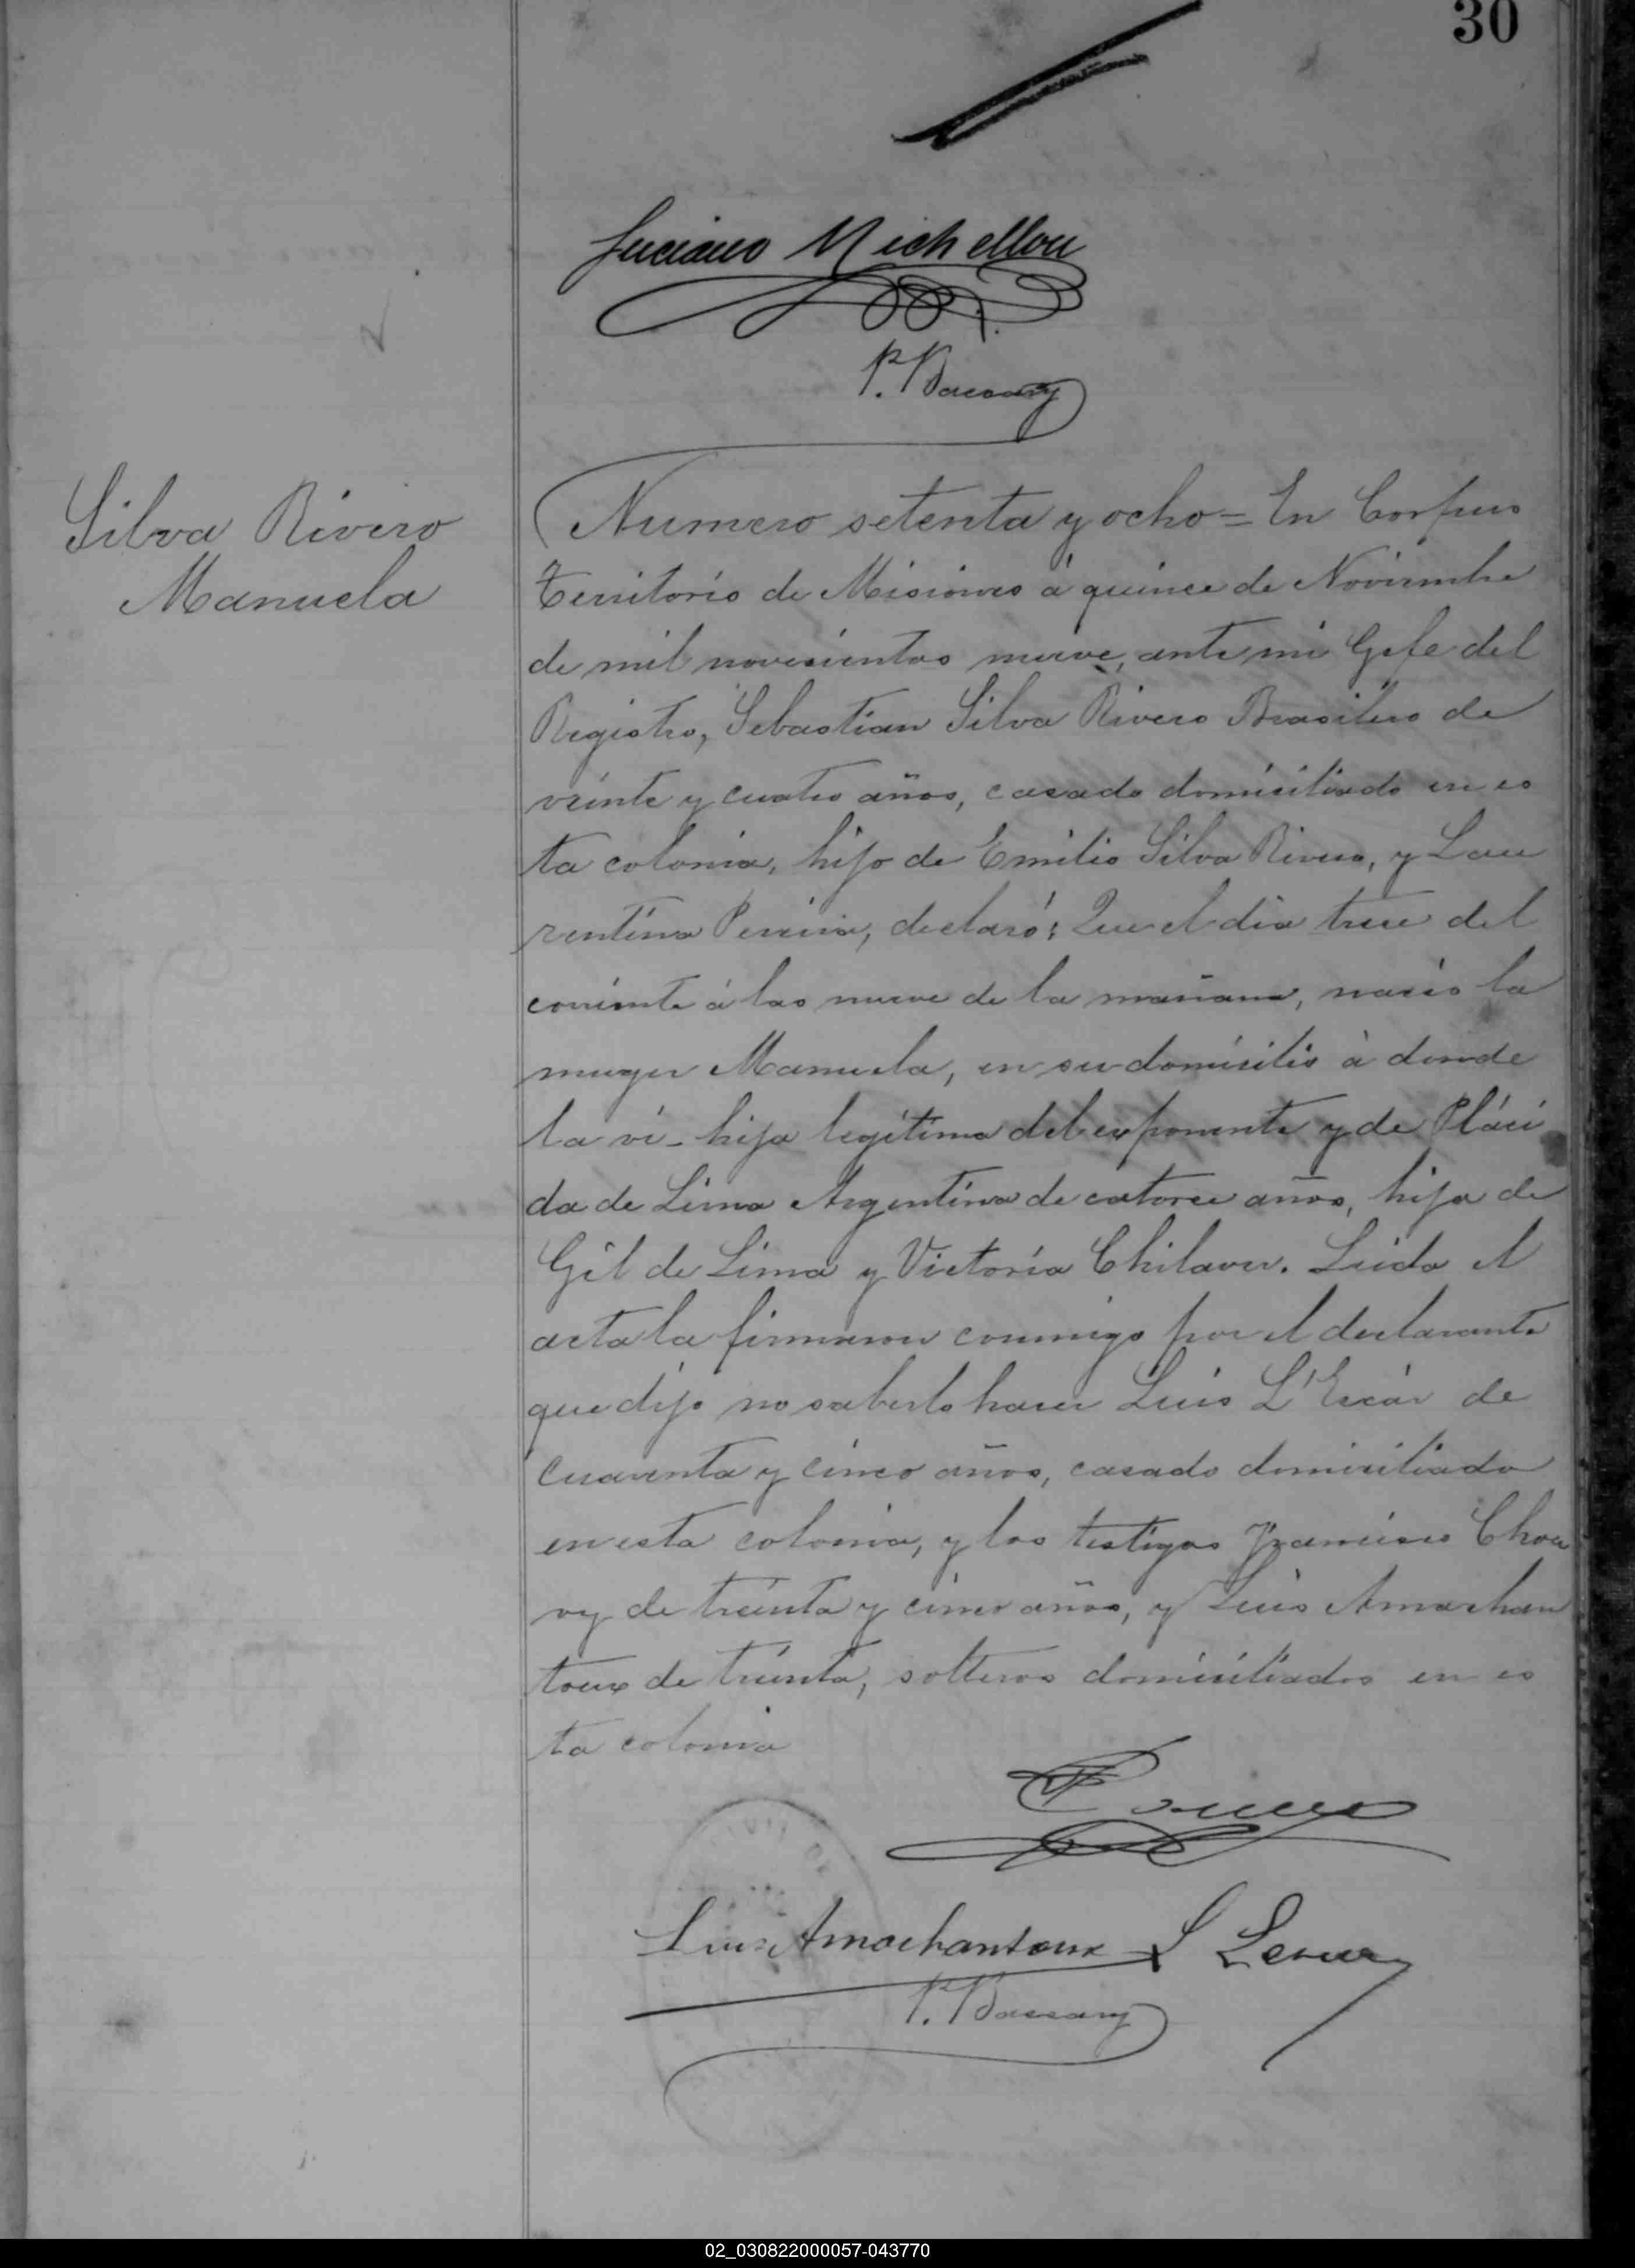 30
Luciano Michellou
P. Bassary
Silva Rivero
Manuela
Numero setenta y ocho = En Corpus
Territorio de Misiones á quince de Noviembre
de mil novecientos nueve, ante mi Gefe del
Registro, Sebastian Silva Rivero Brasilero de
veinte y cuatro años, casado domiciliado en es
ta colonia, hijo de Emilio Silva Rivero, y Lau
rentina Pereira, declaró: Que el dia trece del
corriente á las nueve de la mañana, nació la
muger Manuela, en su domicilio á donde
la ví - hija legítima del exponente y de Pláci
da de Lima Argentina de catorce años, hija de
Gil de Lima y Victoria Chilaver. Leida el
acta la firmaron conmigo por el declarante
que dijo no saberlo hacer Luis L'Escár de
cuarenta y cinco años, casado domiciliado
en esta colonia, y los testigos Francisco Chou
vy de treinta y cinco años, y Luis Amachan
toux de treinta, solteros domiciliados en es
ta colonia
Luis Amochantoux L
P. Bassary
02_030822000057-043770